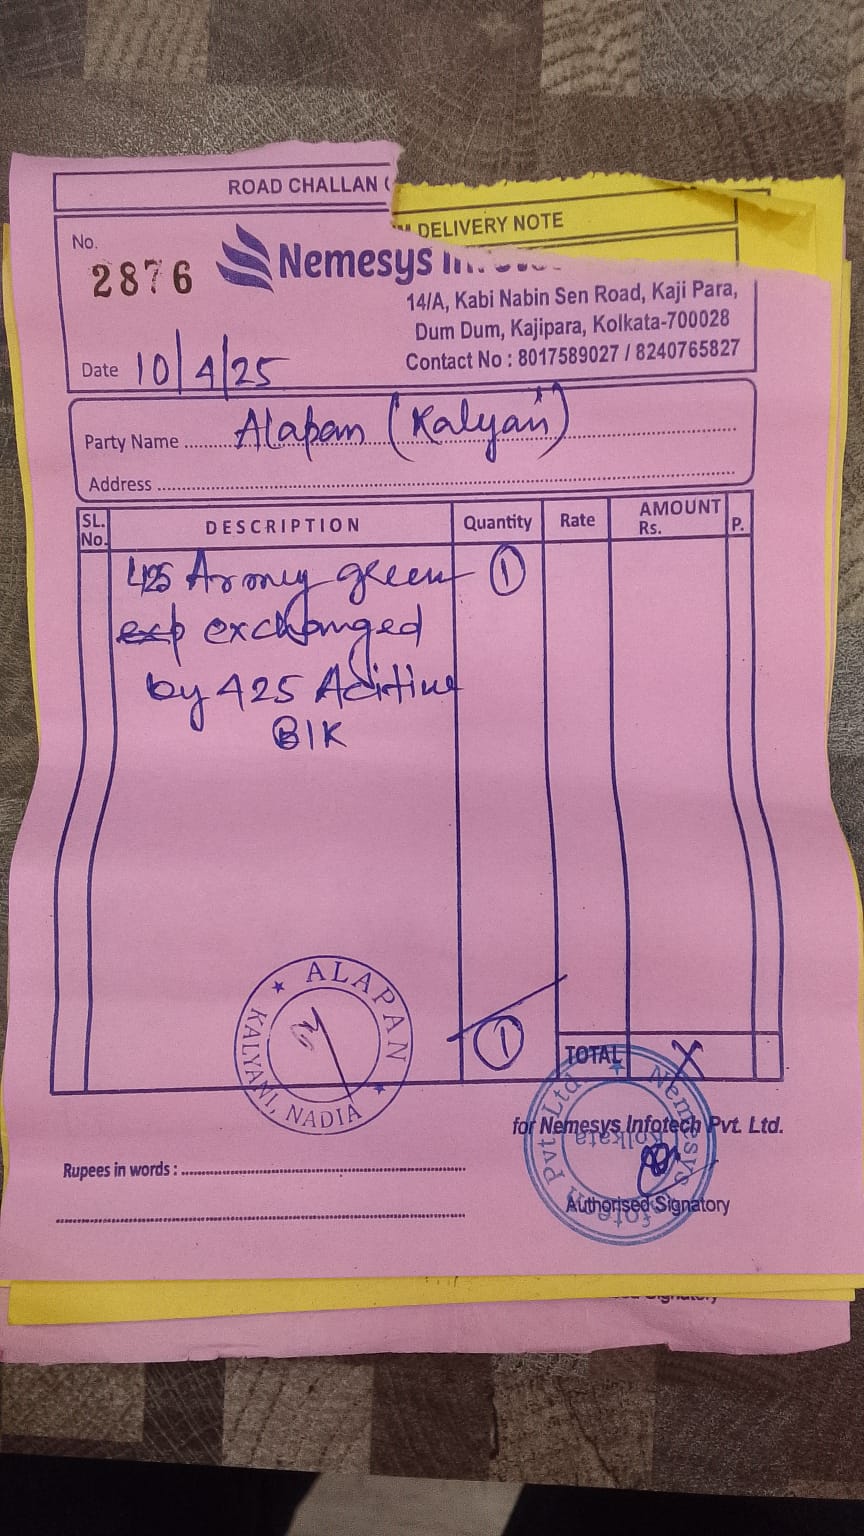 ROAD CHALLAN
DELIVERY NOTE
No.
2876
Nemesys
14/A, Kabi Nabin Sen Road, Kaji Para,
Dum Dum, Kajipara, Kolkata-700028
Contact No : 8017589027 / 8240765827
Date 10/4/25
Party Name Alapan (Kalyani)
Address
SL. No. DESCRIPTION Quantity Rate AMOUNT Rs. P.
425 Army green 1
exp exchanged
by 425
BIK
ALAPAN
KALYANI, NADIA
1
TOTAL X
for Nemesys Infotech Pvt. Ltd.
Nemesys Infotech Pvt. Ltd.
Kolkata
Rupees in words :
Authorised Signatory